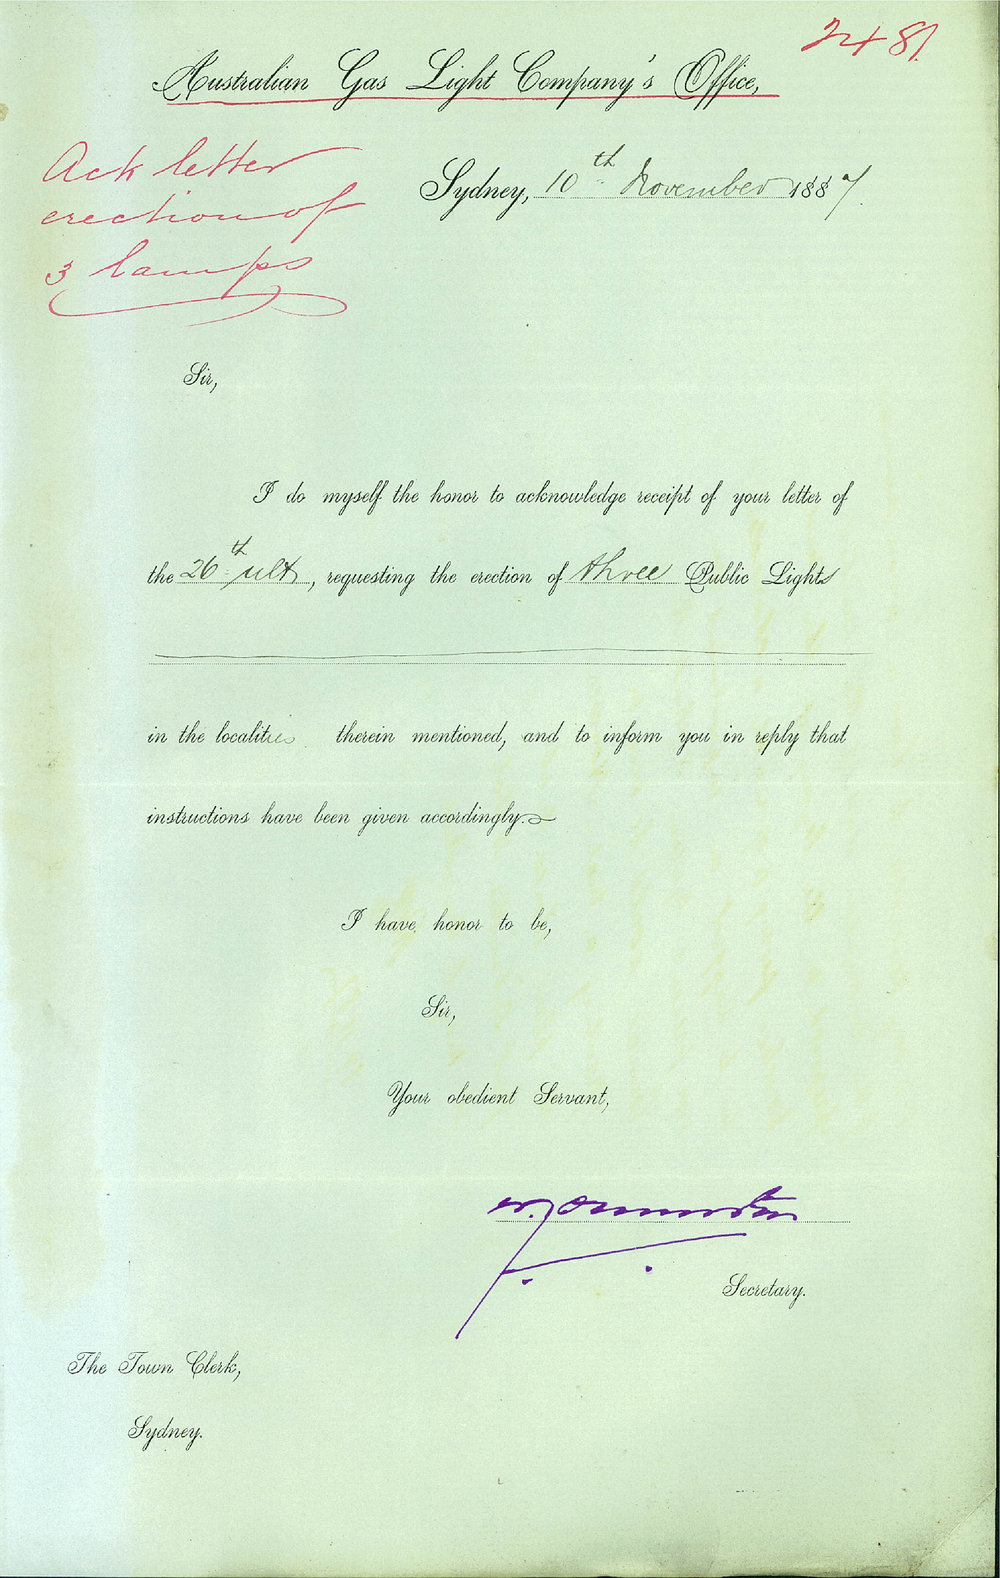 2481
Australian Gas Light Company's Office,
Ack letter
erection of
3 lamps
Sydney, 10th November 1887.
Sir,
I do myself the honor to acknowledge receipt of your letter of
the 26th ult, requesting the erection of three Public Lights
in the localities therein mentioned, and to inform you in reply that
instructions have been given accordingly.
I have honor to be,
Sir,
Your obedient Servant,
Secretary.
The Town Clerk,
Sydney.